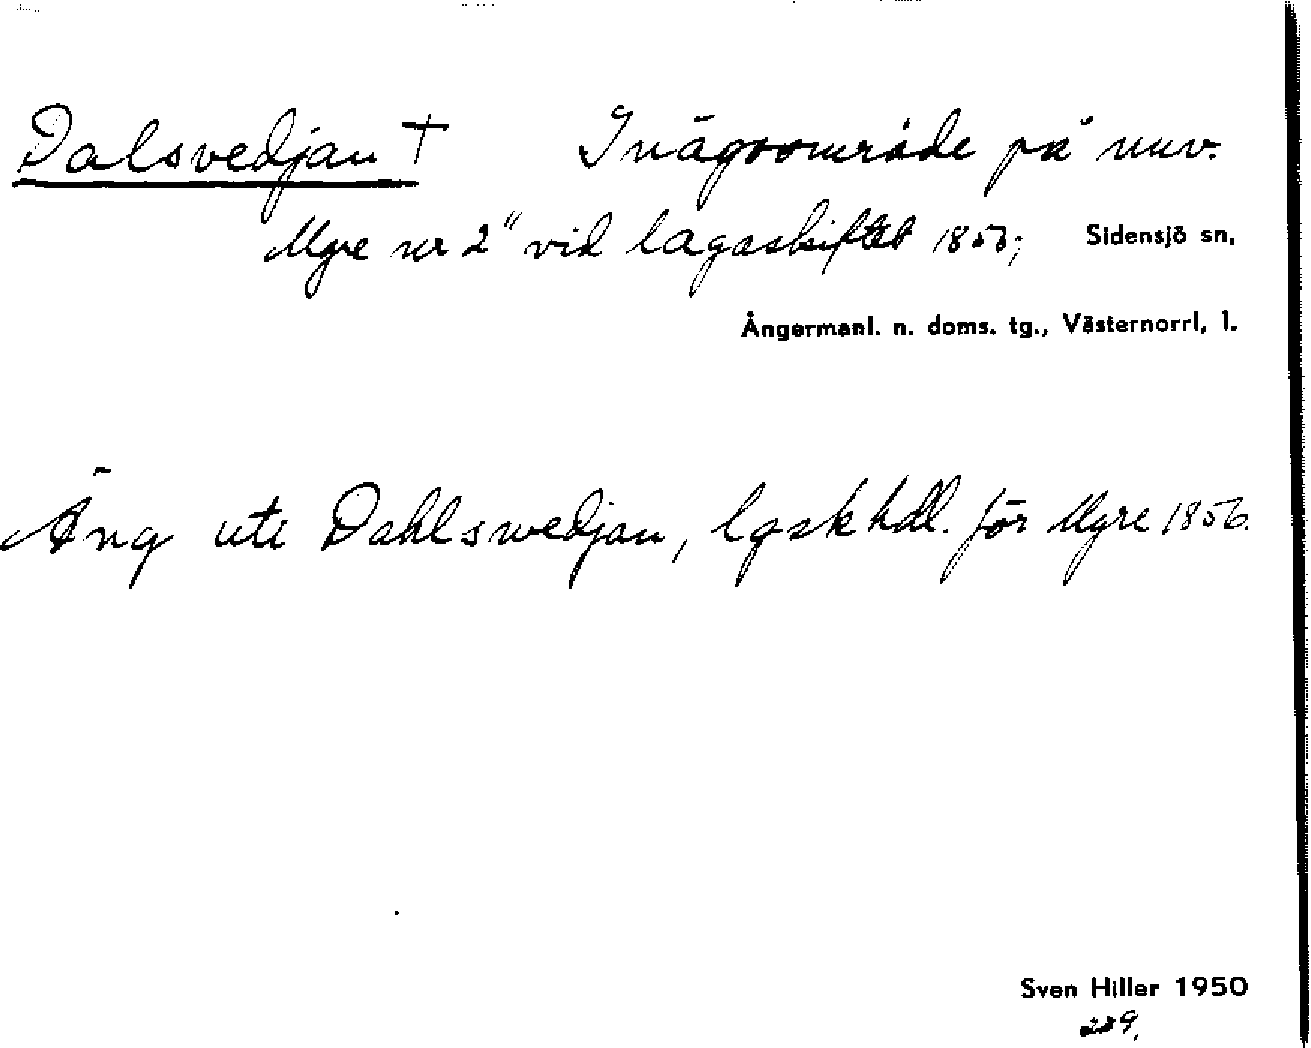 Dalsvedjan † Inägoområde på nuv.
Myre nr 2" vid lagaskiftet 1856; Sidensjö sn.
Ångermanl. n. doms. tg., Västernorrl. l.
Äng ute Dahlswedjan, lgsk hdl. för Myre 1856.
Sven Hiller 1950